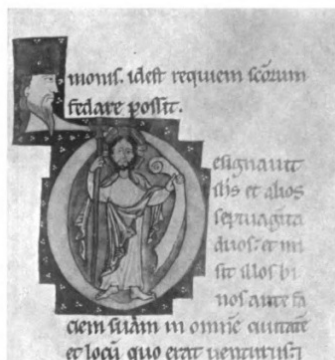 monis. idest requiem scōrum
fedare possit.
Designauit
et alios
septuagīta
duos: et mi
sit illos bi
nos ante fa
ciem suam in omnē ciuitatē
et locū quo erat uenturus